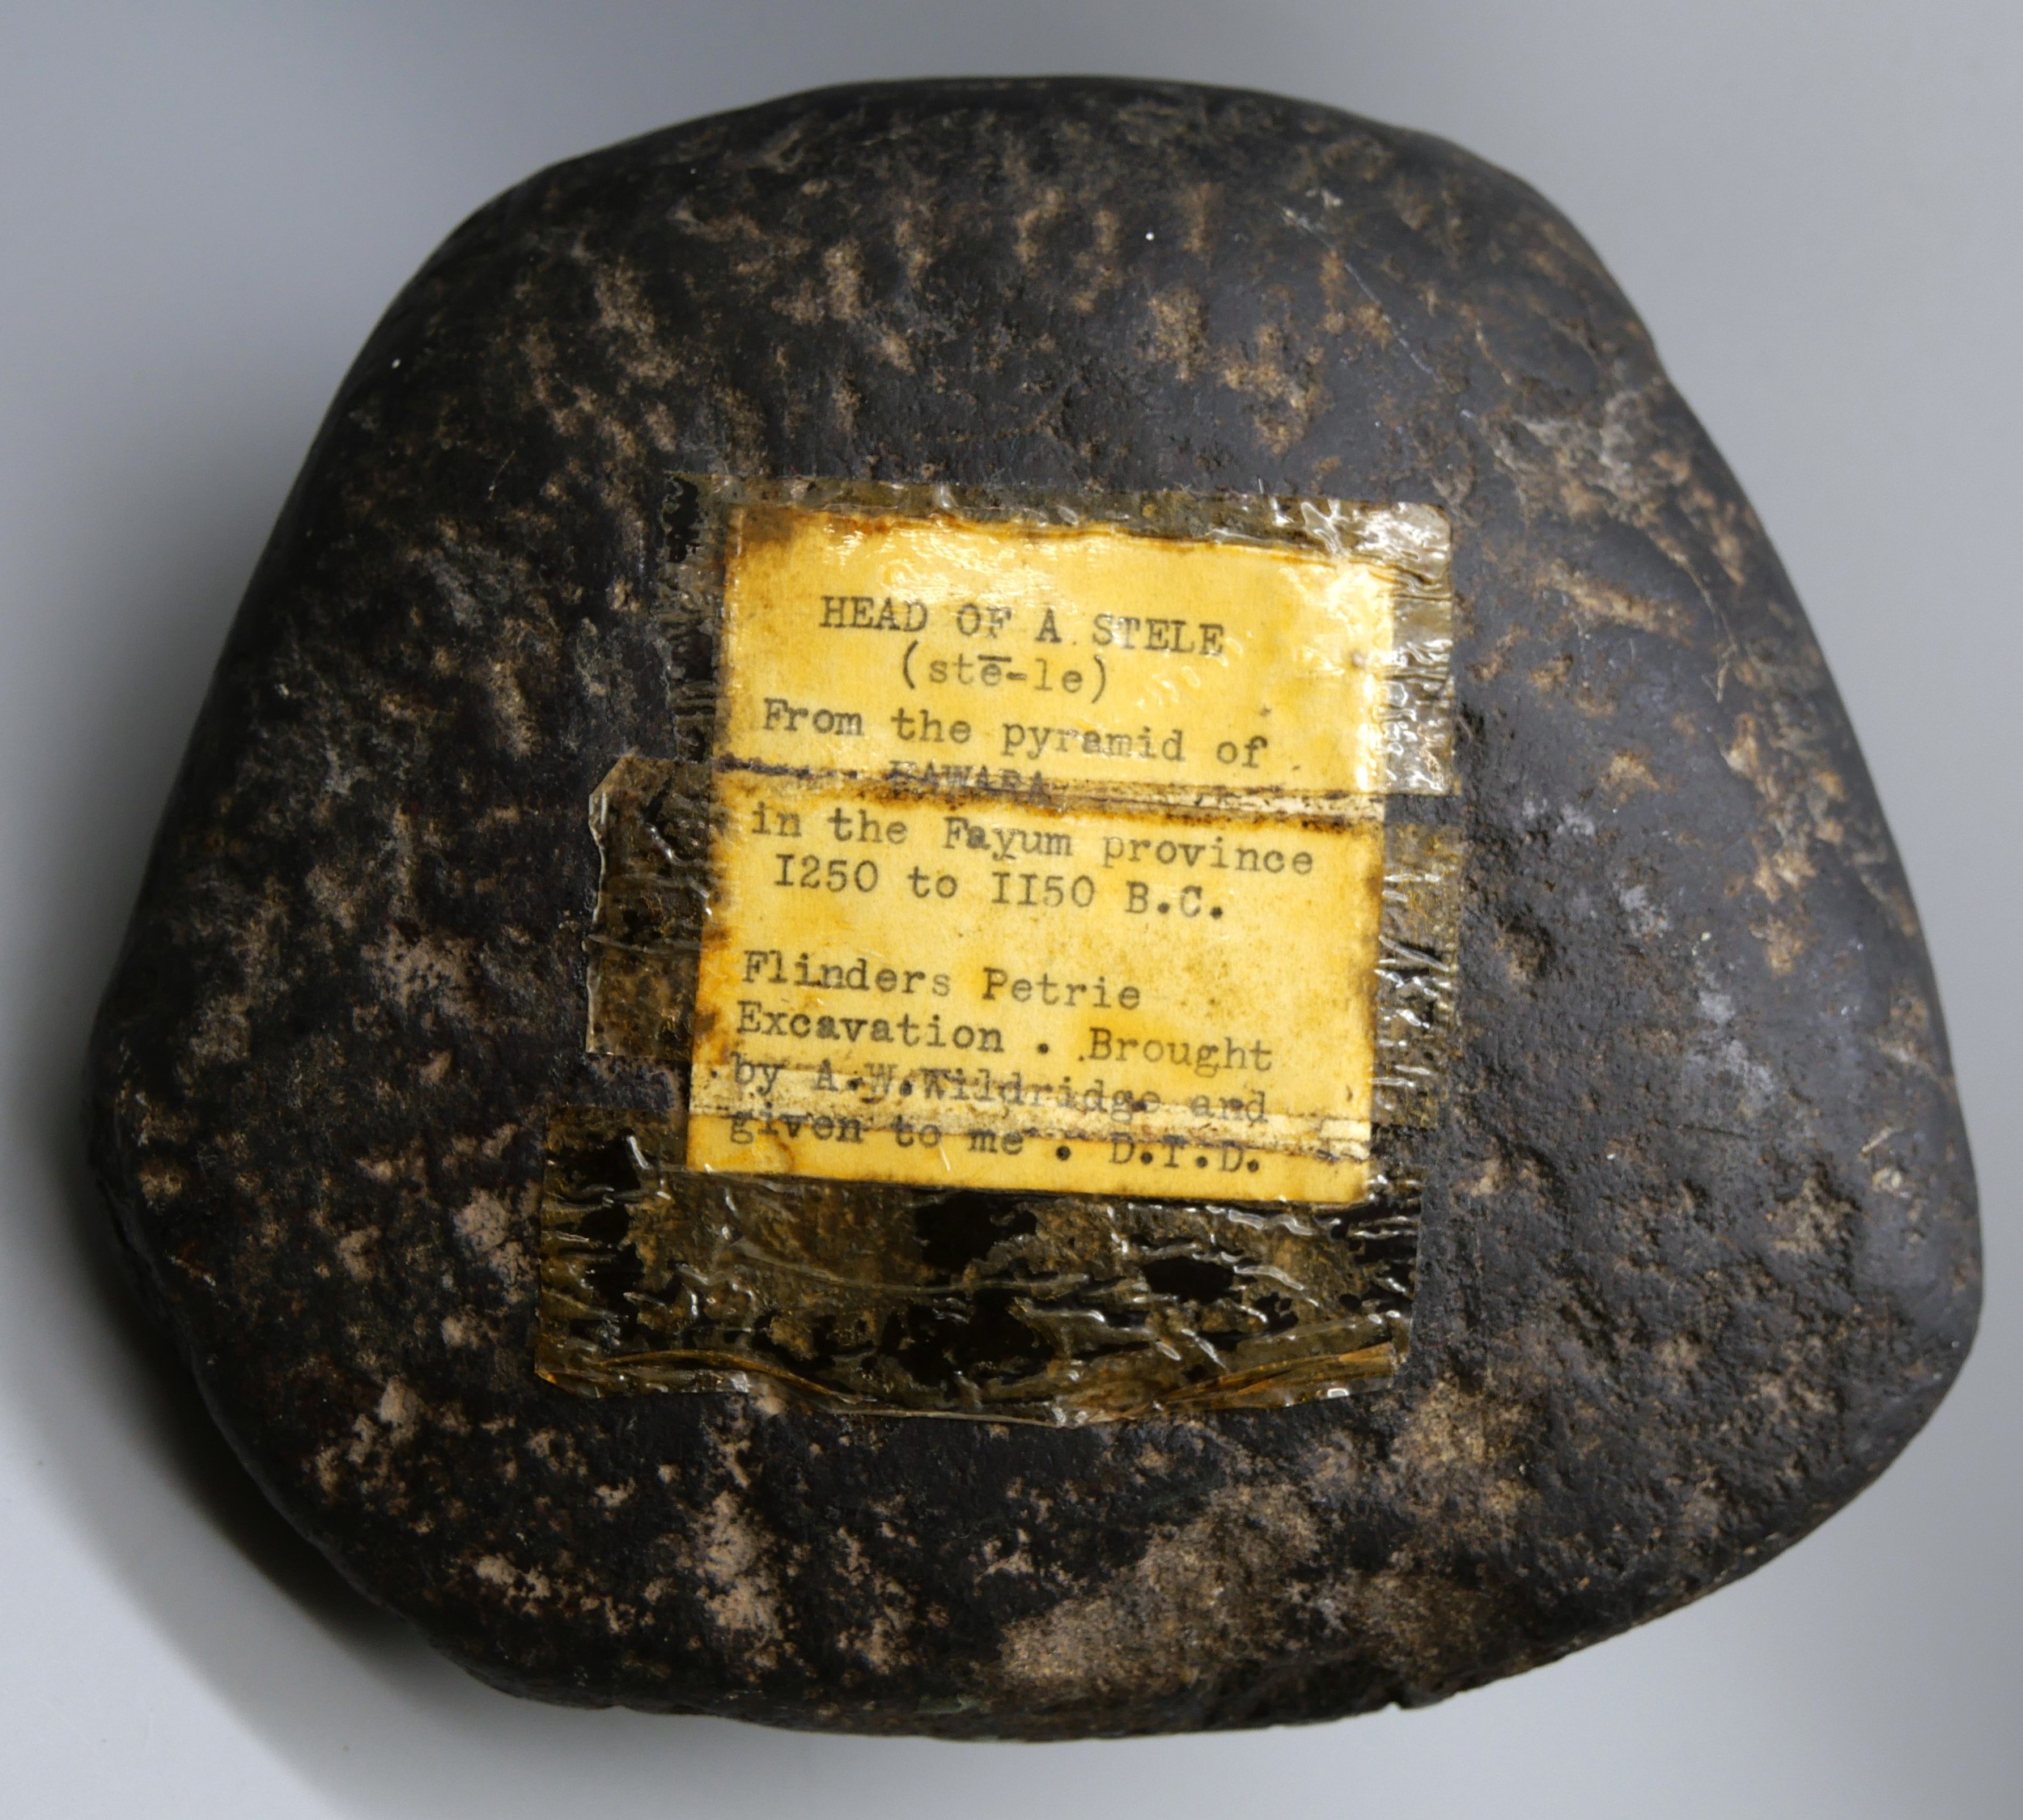 HEAD OF A STELE
(stē-le)
From the pyramid of
HAWARA
in the Fayum province
I250 to II50 B.C.
Flinders Petrie
Excavation . Brought
by A.W.Wildridge and
given to me . D.I.D.